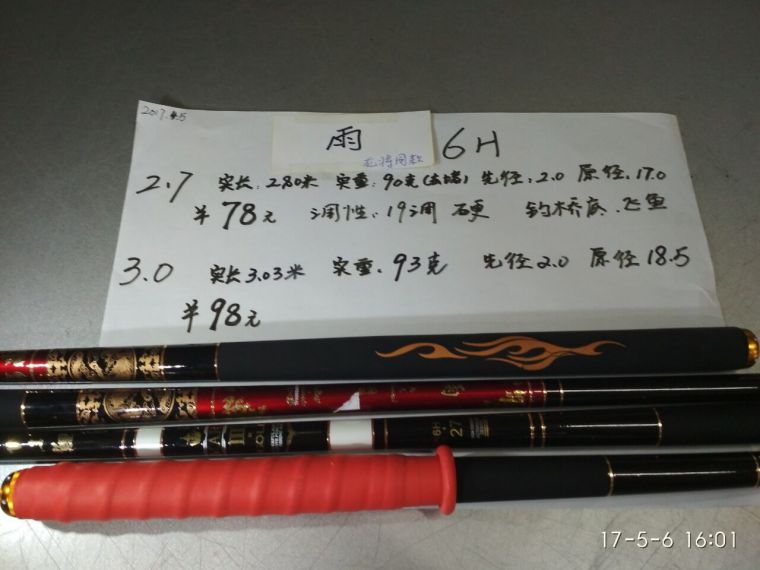 2017.5.5
雨 6H
龙将同款
2.7 实长:2.80米 实重:90克(去堵) 先径:2.0 原径:17.0
半 78元 调性:19调 硬 钓桥底、飞鱼
3.0 实长3.03米 实重:93克 先径2.0 原径18.5
半 98元
6H 27
17-5-6 16:01